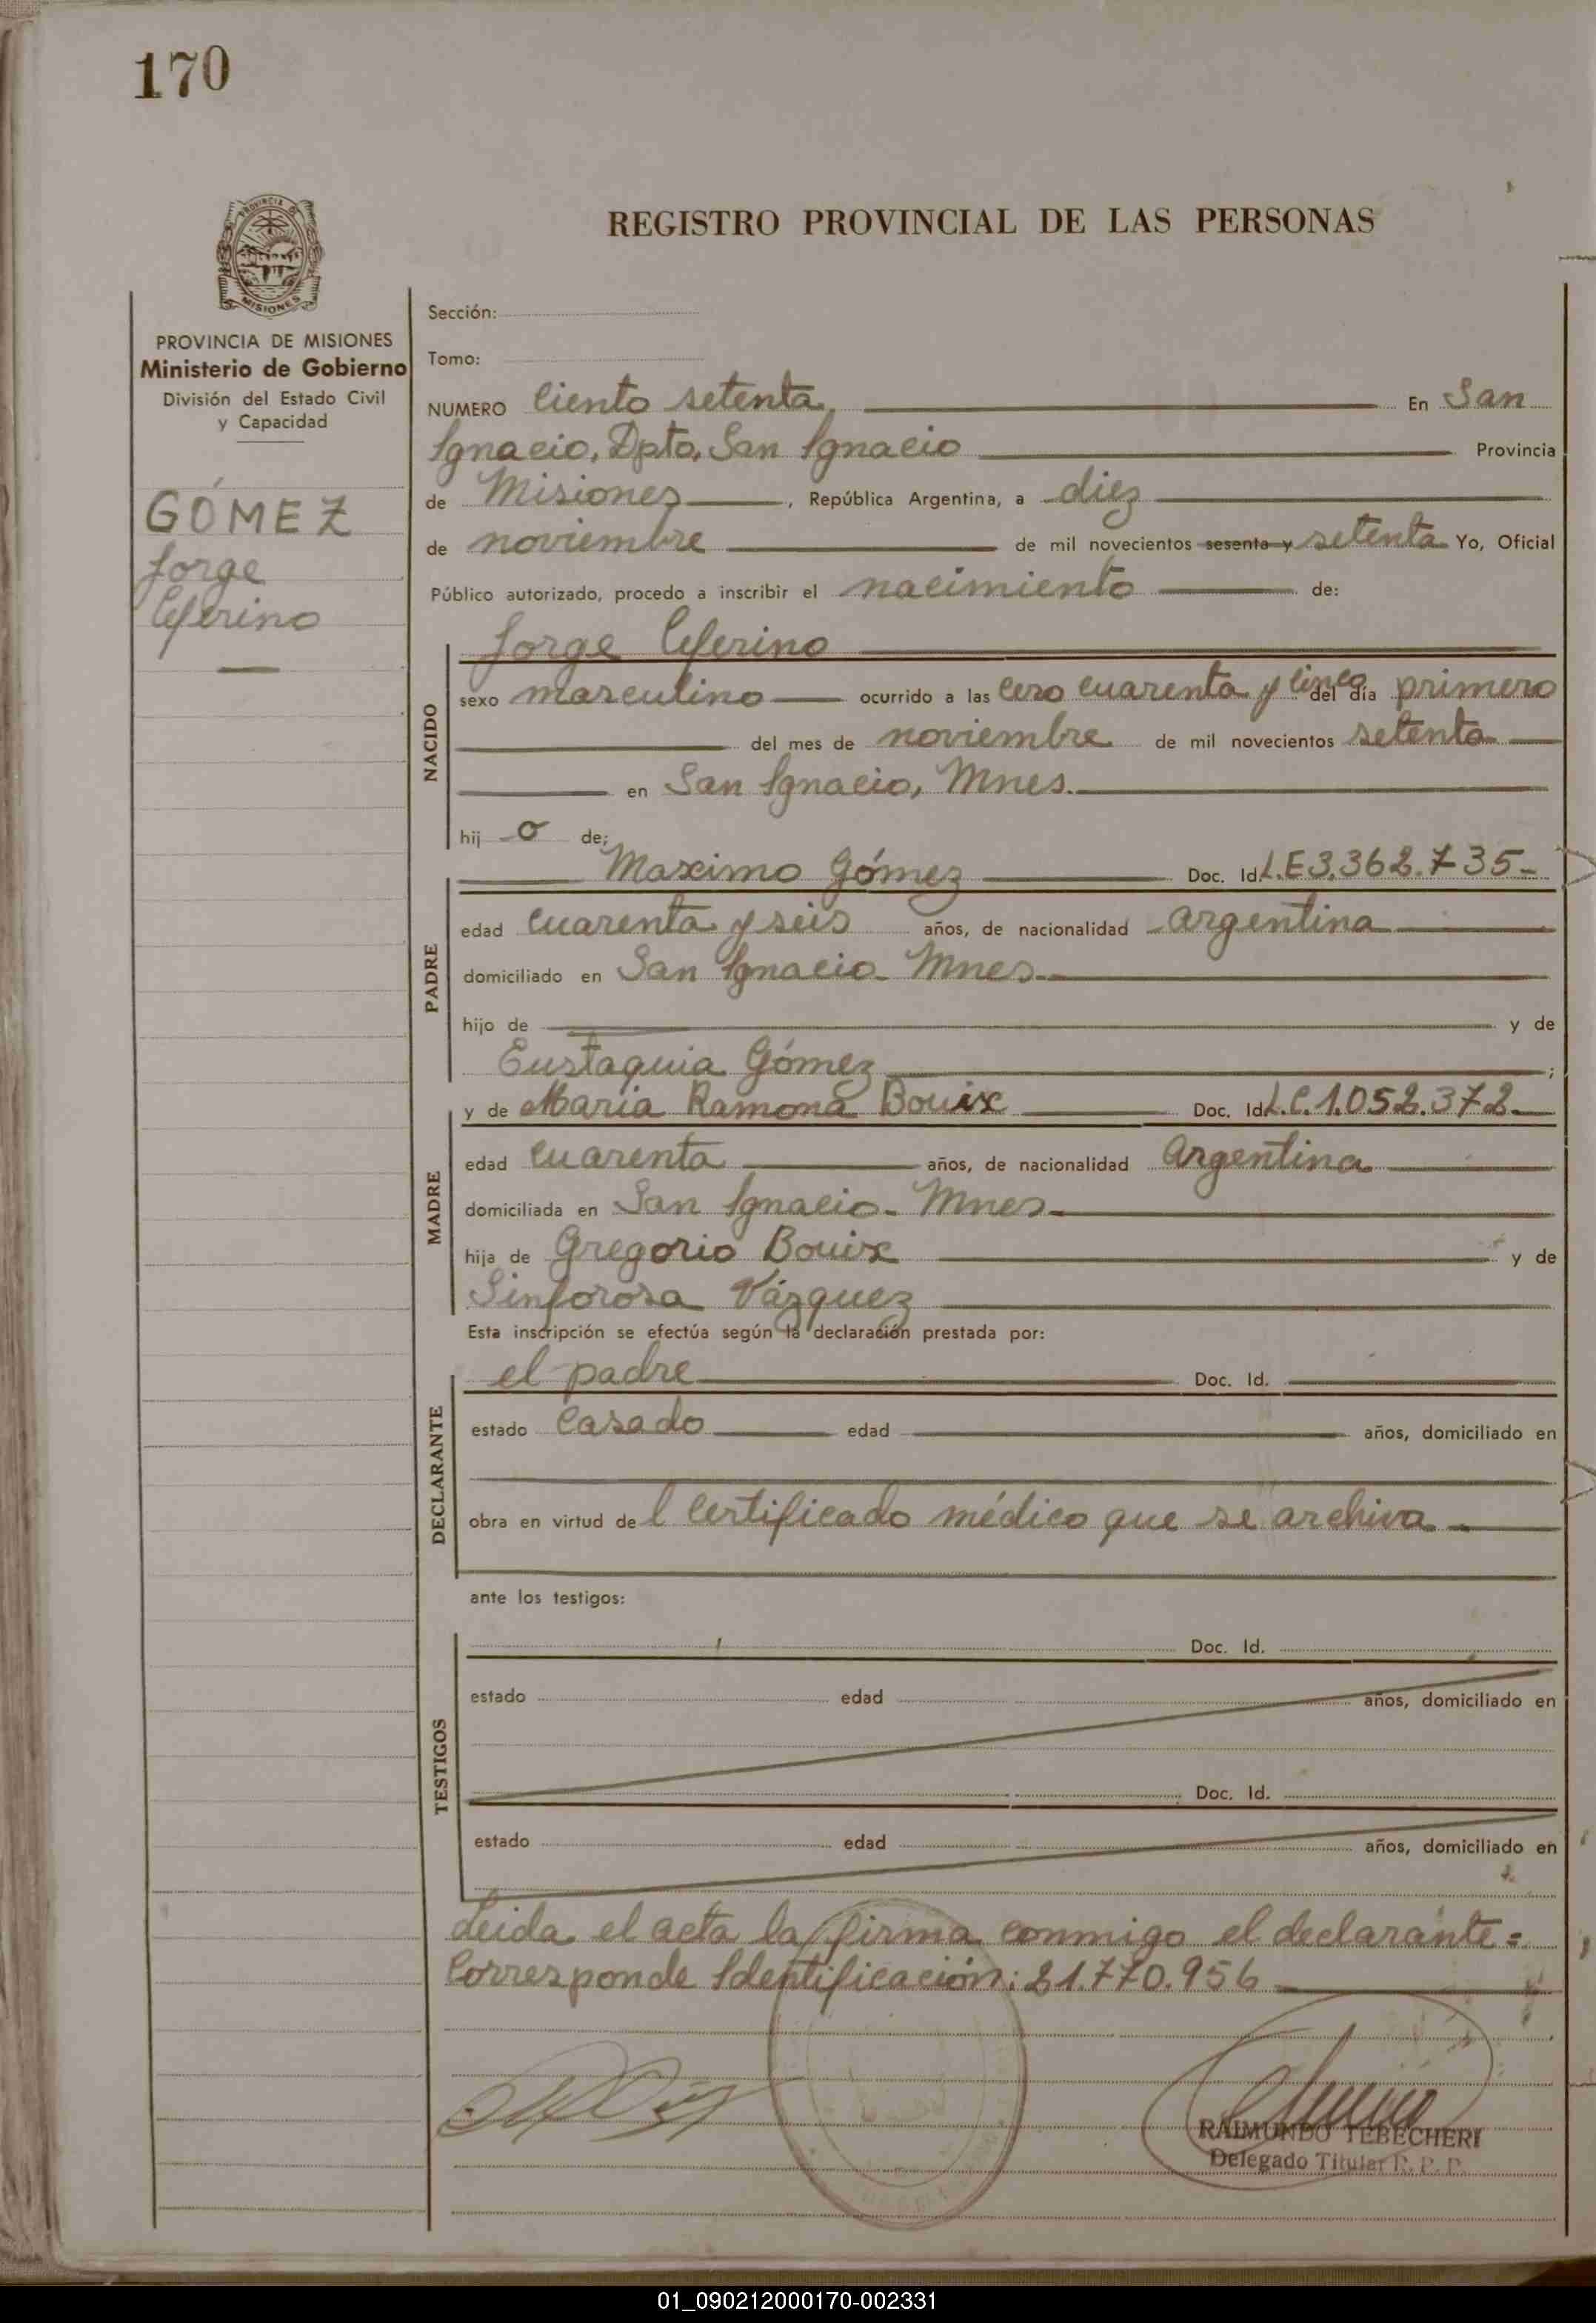 170
PROVINCIA DE
MISIONES
REGISTRO PROVINCIAL DE LAS PERSONAS
PROVINCIA DE MISIONES
Ministerio de Gobierno
División del Estado Civil
y Capacidad
GÓMEZ
Jorge
Ceferino
Sección:
Tomo:
NUMERO Ciento setenta En San
Ignacio, Dpto. San Ignacio Provincia
de Misiones, República Argentina, a diez
de noviembre de mil novecientos sesenta y setenta Yo, Oficial
Público autorizado, procedo a inscribir el nacimiento de:
NACIDO
Jorge Ceferino
sexo masculino ocurrido a las cero cuarenta y cinco del día primero
del mes de noviembre de mil novecientos setenta
en San Ignacio, Mnes.
hij o de:
PADRE
Maximo Gómez Doc. Id. L.E 3.362.735-
edad cuarenta y seis años, de nacionalidad argentina
domiciliado en San Ignacio- Mnes.
hijo de y de
Eustaquia Gómez ;
MADRE
y de Maria Ramona Bouix Doc. Id. L.C. 1.052.372
edad cuarenta años, de nacionalidad Argentina
domiciliada en San Ignacio- Mnes.
hija de Gregorio Bouix y de
Sinforosa Vázquez
Esta inscripción se efectúa según la declaración prestada por:
DECLARANTE
el padre Doc. Id.
estado Casado edad años, domiciliado en
obra en virtud de l certificado médico que se archiva
ante los testigos:
TESTIGOS
Doc. Id.
estado edad años, domiciliado en
Doc. Id.
estado edad años, domiciliado en
Leida el acta la firma conmigo el declarante=
Corresponde Identificación: 21.770.956
RAIMUNDO TEBECHERI
Delegado Titular R. P. P.
01_090212000170-002331